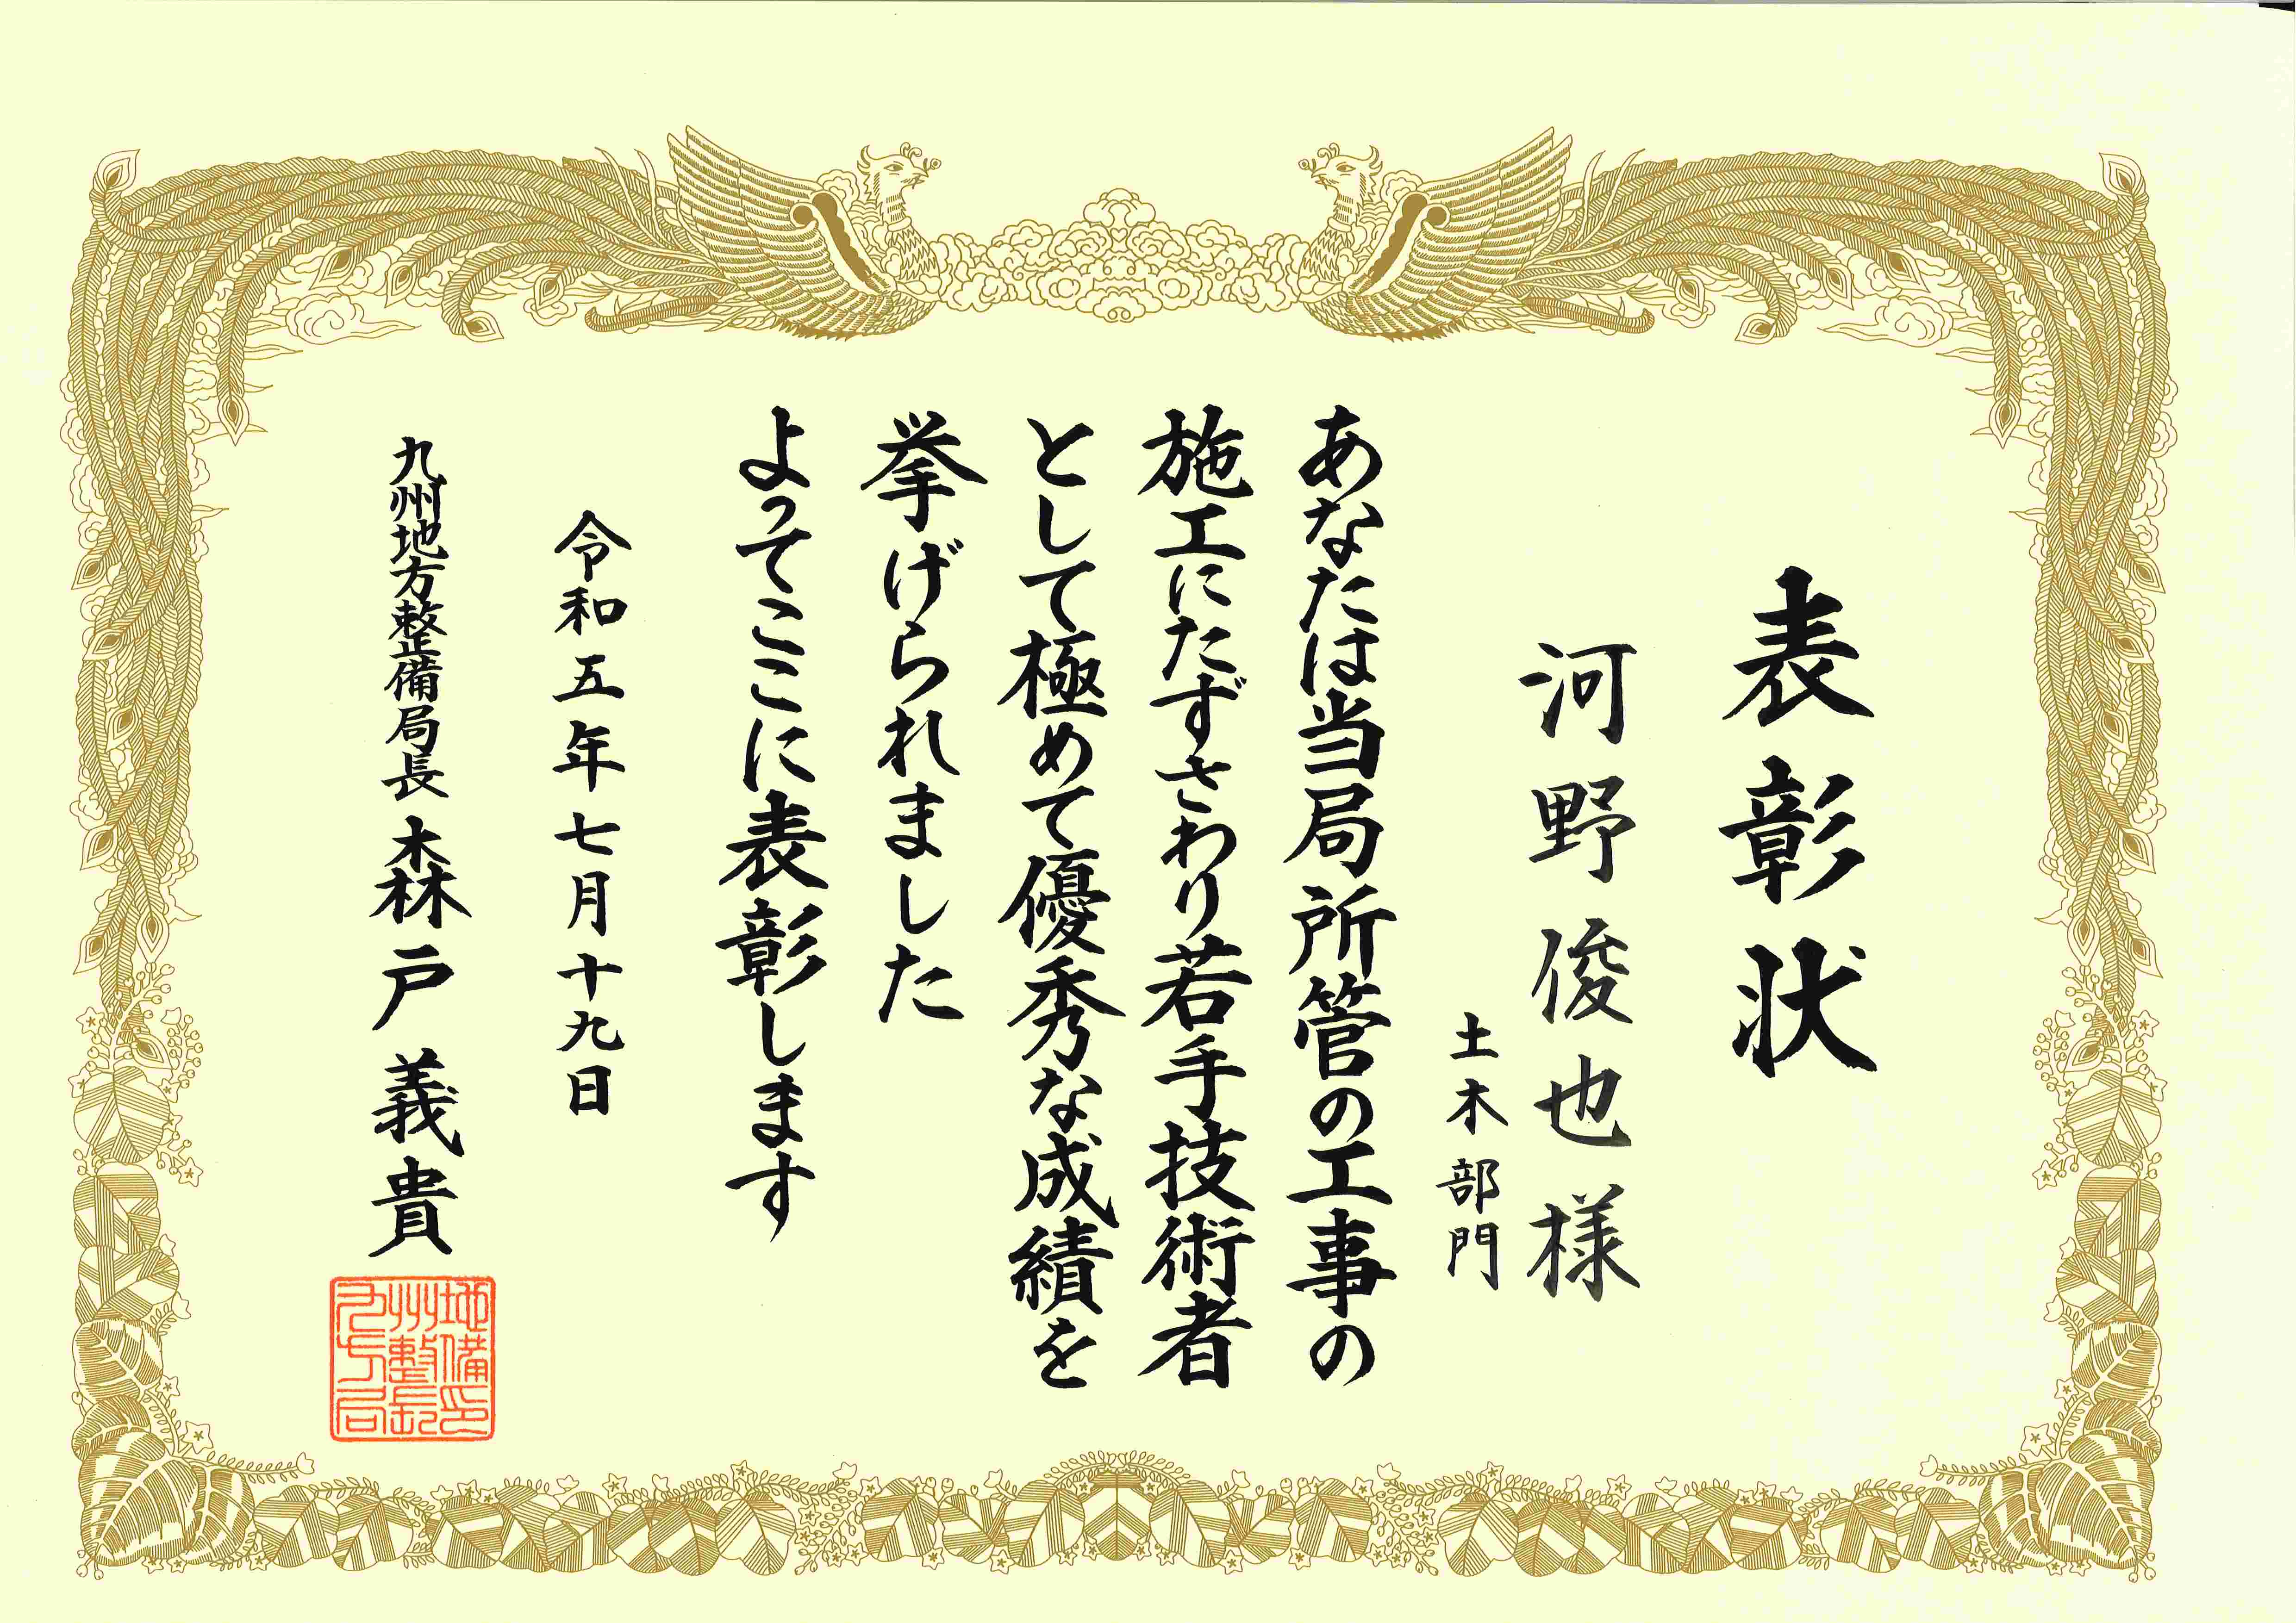 表彰状
河野俊也様
土木部門
あなたは当局所管の工事の
施工にたずさわり若手技術者
として極めて優秀な成績を
挙げられました
よってここに表彰します
令和五年七月十九日
九州地方整備局長 森戸義貴
九州地方整備局長印